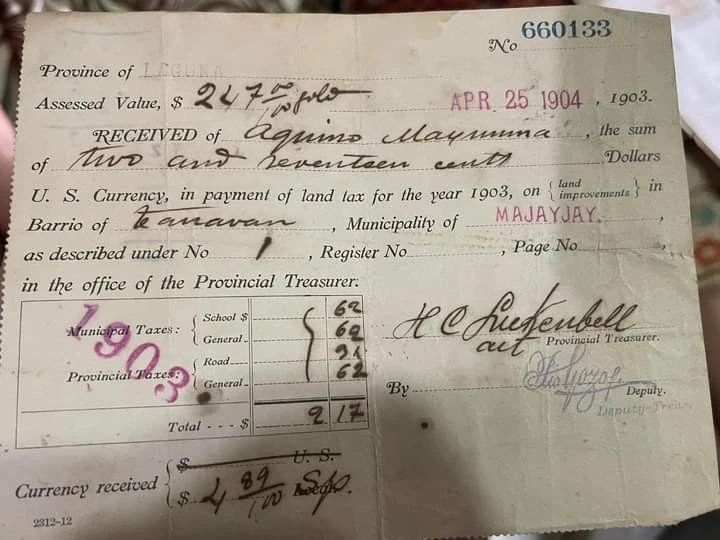 No 660133
Province of LAGUNA
Assessed Value, $ 247 00/100 gold APR 25 1904, 1903.
RECEIVED of Aquino Maymina, the sum
of two and seventeen cents Dollars
U. S. Currency, in payment of land tax for the year 1903, on { land improvements } in
Barrio of Tanavan, Municipality of MAJAYJAY.,
as described under No 1, Register No , Page No ,
in the office of the Provincial Treasurer.
1903
Municipal Taxes: { School $ 62
General 62
Provincial Taxes: { Road 31
General 62
Total - - - $ 2 17
H C Luckenbell
act Provincial Treasurer.
By Deputy.
Deputy-Treas.
Currency received { $ U. S.
$ 4 89/100 Local.
2312-12